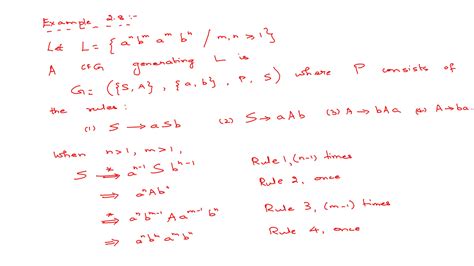 Example 2.8:-
Let L = { aⁿ bᵐ aᵐ bⁿ / m, n ≥ 1 }
A CFG generating L is
G = ({S, A}, {a, b}, P, S) where P consists of
the rules :
(1) S → aSb (2) S → aAb (3) A → bAa (4) A → ba.
When n > 1, m > 1,
S *⇒ aⁿ⁻¹ S bⁿ⁻¹ Rule 1, (n-1) times
⇒ aⁿ A bⁿ Rule 2, once
*⇒ aⁿ bᵐ⁻¹ A aᵐ⁻¹ bⁿ Rule 3, (m-1) times
⇒ aⁿ bᵐ aᵐ bⁿ Rule 4, once